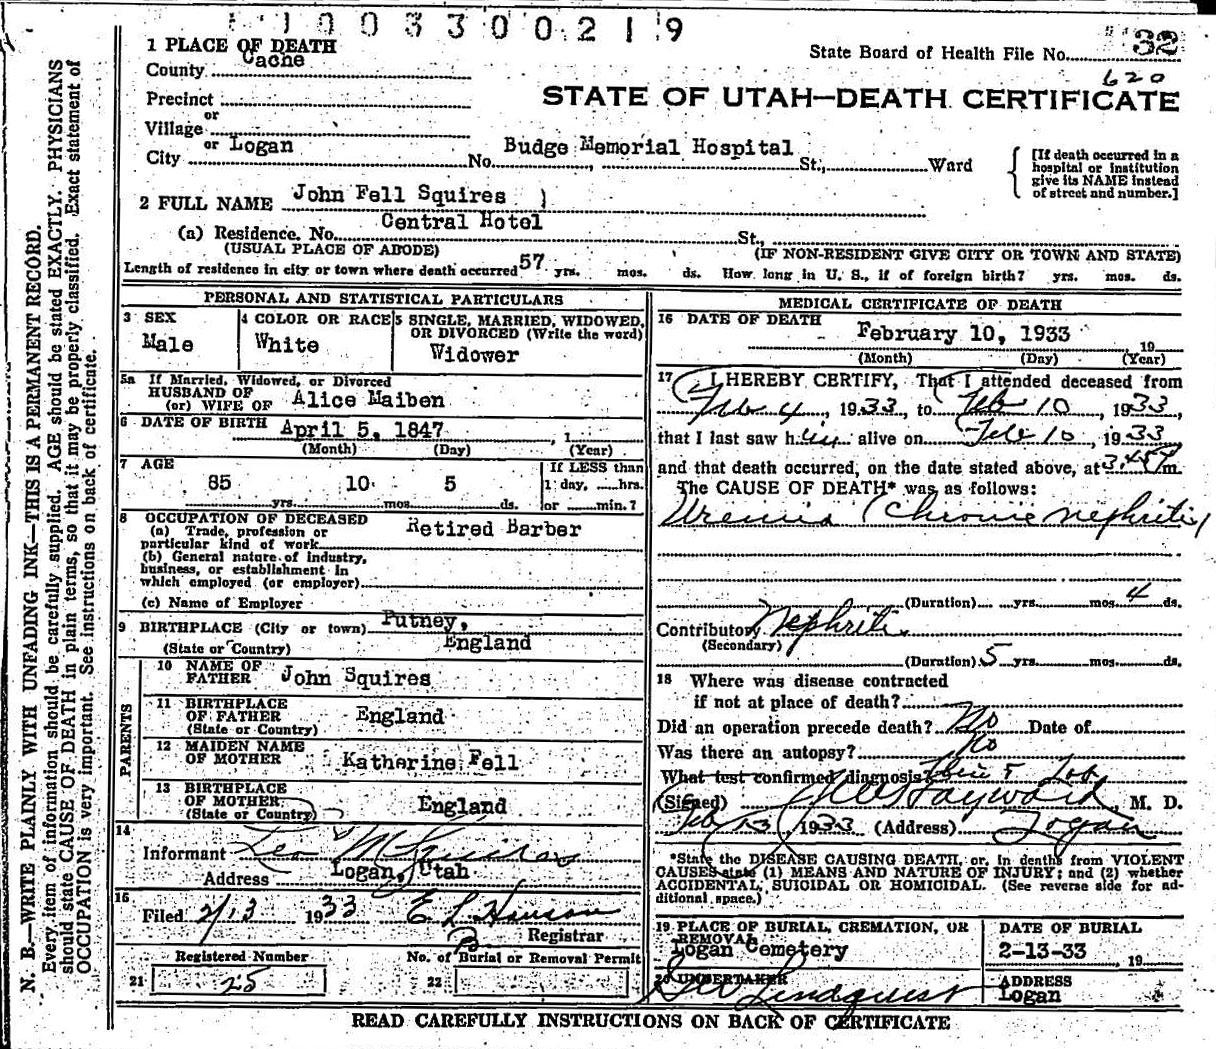 1003300219
1 PLACE OF DEATH
State Board of Health File No. 32
County Cache
620
Precinct
STATE OF UTAH—DEATH CERTIFICATE
or
Village
or
City Logan No. Budge Memorial Hospital St., Ward
[If death occurred in a
hospital or institution
give its NAME instead
of street and number.]
2 FULL NAME John Fell Squires
(a) Residence. No. Central Hotel St.,
(USUAL PLACE OF ABODE) (IF NON-RESIDENT GIVE CITY OR TOWN AND STATE)
Length of residence in city or town where death occurred 57 yrs. mos. ds. How long in U. S., if of foreign birth? yrs. mos. ds.
PERSONAL AND STATISTICAL PARTICULARS
3 SEX
Male
4 COLOR OR RACE
White
5 SINGLE, MARRIED, WIDOWED,
OR DIVORCED (Write the word)
Widower
5a If Married, Widowed, or Divorced
HUSBAND OF
(or) WIFE OF Alice Maiben
6 DATE OF BIRTH April 5, 1847 , 1
(Month) (Day) (Year)
7 AGE
85 yrs. 10 mos. 5 ds.
If LESS than
1 day, hrs.
or min.?
8 OCCUPATION OF DECEASED
(a) Trade, profession or
particular kind of work Retired Barber
(b) General nature of industry,
business, or establishment in
which employed (or employer)
(c) Name of Employer
9 BIRTHPLACE (City or town) Putney,
(State or Country) England
PARENTS
10 NAME OF
FATHER John Squires
11 BIRTHPLACE
OF FATHER England
(State or Country)
12 MAIDEN NAME
OF MOTHER Katherine Fell
13 BIRTHPLACE
OF MOTHER England
(State or Country)
14
Informant Leo M Squires
Address Logan, Utah
15
Filed 2/13 1933 E L Hanson
Registrar
Registered Number
21 25
No. of Burial or Removal Permit
22
MEDICAL CERTIFICATE OF DEATH
16 DATE OF DEATH
February 10, 1933 19
(Month) (Day) (Year)
17 I HEREBY CERTIFY, That I attended deceased from
Feb 4, 1933, to Feb 10, 1933,
that I last saw him alive on Feb 10, 1933
and that death occurred, on the date stated above, at m.
The CAUSE OF DEATH* was as follows:
Uremia (Chronic nephritis)
(Duration) yrs. mos. 4 ds.
Contributory Nephritis
(Secondary)
(Duration) 5 yrs. mos. ds.
18 Where was disease contracted
if not at place of death?
Did an operation precede death? No Date of
Was there an autopsy? No
What test confirmed diagnosis? Lab
(Signed) Hayward, M. D.
Feb 13, 1933 (Address) Logan
*State the DISEASE CAUSING DEATH, or, in deaths from VIOLENT
CAUSES state (1) MEANS AND NATURE OF INJURY; and (2) whether
ACCIDENTAL, SUICIDAL OR HOMICIDAL. (See reverse side for ad-
ditional space.)
19 PLACE OF BURIAL, CREMATION, OR
REMOVAL
Logan Cemetery
DATE OF BURIAL
2-13-33 , 19
20 UNDERTAKER
Lindquist
ADDRESS
Logan
READ CAREFULLY INSTRUCTIONS ON BACK OF CERTIFICATE
N. B.—WRITE PLAINLY WITH UNFADING INK—THIS IS A PERMANENT RECORD.
Every item of information should be carefully supplied. AGE should be stated EXACTLY. PHYSICIANS
should state CAUSE OF DEATH in plain terms, so that it may be properly classified. Exact statement of
OCCUPATION is very important. See instructions on back of certificate.